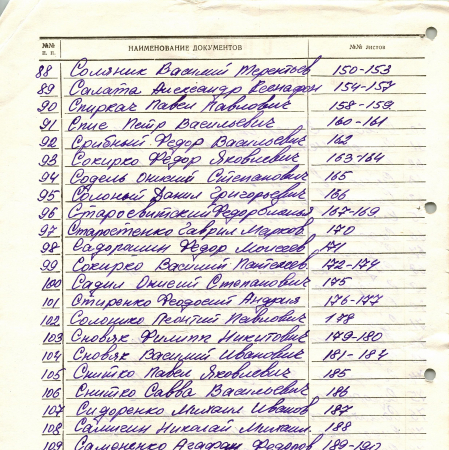 №№ п. п. НАИМЕНОВАНИЕ ДОКУМЕНТОВ №№ листов
88 Соляник Василий Терентьев 150-153
89 Салата Александр 154-157
90 Спиркач Павел Павлович 158-159
91 Спис Петр Васильевич 160-161
92 Срибный Федор Васильевич 162
93 Сокирко Федор Яковлевич 163-164
94 Содель Онисий Степанович 165
95 Солоный Данил Григорьевич 166
96 Старосвитский Федор 167-169
97 Старостенко Гаврил Марков 170
98 Федор Моисеев 171
99 Сокирко Василий Пантелеев 172-174
100 Садил Онисий Степанович 175
101 Стиренко Феодосий Андрия 176-177
102 Солошко Леонтий Павлович 178
103 Сновяк Филипп Никитович 179-180
104 Сновяк Василий Иванович 181-184
105 Снитко Павел Яковлевич 185
106 Снитко Савва Васильевич 186
107 Сидоренко Михаил Иванов 187
108 Николай Михаил. 188
109 Самоненко Агафан Федоров 189-190